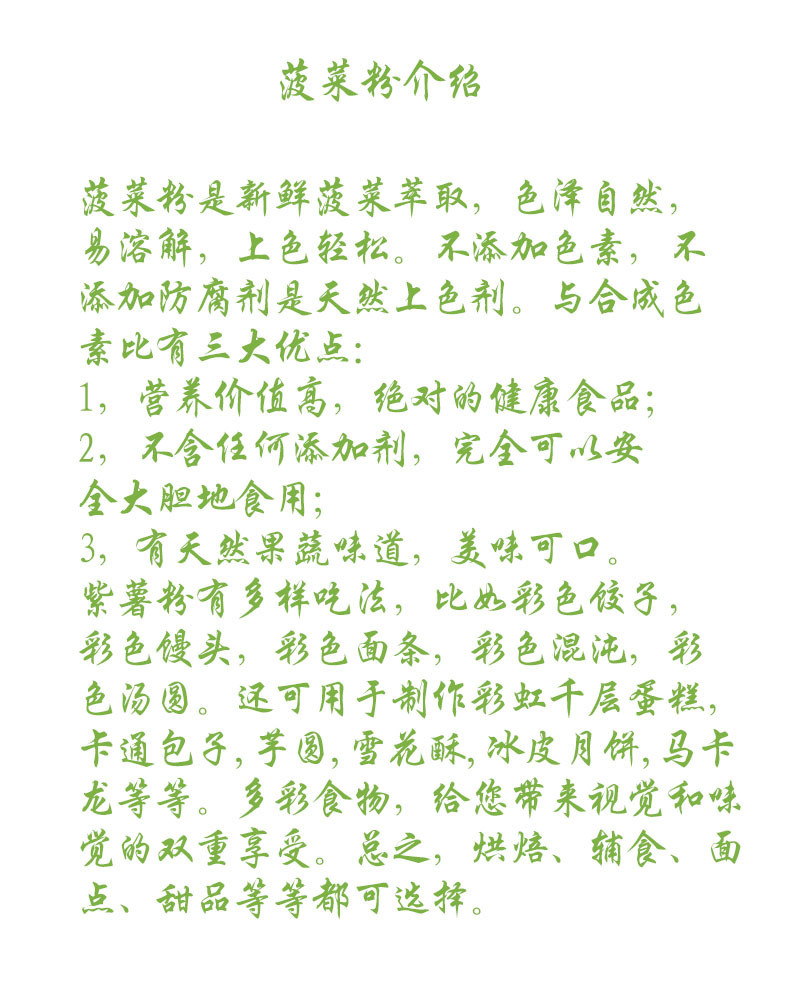 菠菜粉介绍
菠菜粉是新鲜菠菜萃取，色泽自然，
易溶解，上色轻松。不添加色素，不
添加防腐剂是天然上色剂。与合成色
素比有三大优点：
1，营养价值高，绝对的健康食品；
2，不含任何添加剂，完全可以安
全大胆地食用；
3，有天然果蔬味道，美味可口。
紫薯粉有多样吃法，比如彩色饺子，
彩色馒头，彩色面条，彩色混沌，彩
色汤圆。还可用于制作彩虹千层蛋糕，
卡通包子,芋圆,雪花酥,冰皮月饼,马卡
龙等等。多彩食物，给您带来视觉和味
觉的双重享受。总之，烘焙、辅食、面
点、甜品等等都可选择。